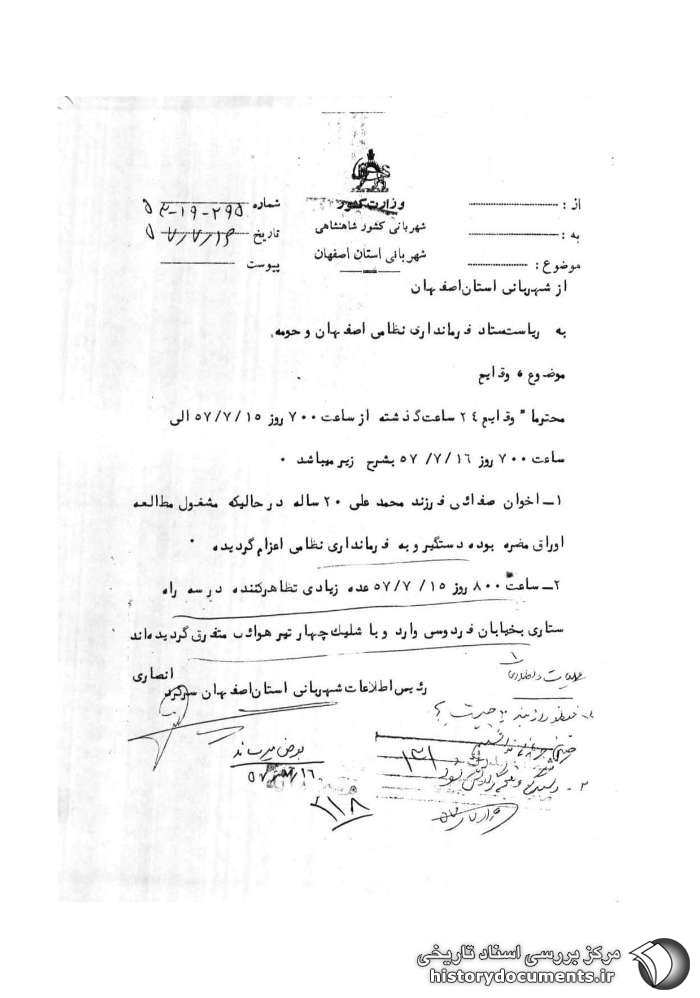 وزارت کشور
شهربانی کشور شاهنشاهی
شهربانی استان اصفهان
از :
به :
موضوع :
شماره ۲۹۵-۱۹-۵۲
تاریخ ۵۷/۷/۱۶
پیوست
از شهربانی استان اصفهان
به ریاست ستاد فرمانداری نظامی اصفهان و حومه.
موضوع ، وقایع
محترما" وقایع ۲۴ ساعت گذشته از ساعت ۷۰۰ روز ۵۷/۷/۱۵ الی
ساعت ۷۰۰ روز ۵۷/۷/۱۶ بشرح زیر میباشد .
۱ـ اخوان صفائی فرزند محمد علی ۲۰ ساله در حالیکه مشغول مطالعه
اوراق مضره بوده دستگیر و به فرمانداری نظامی اعزام گردیده .
۲ـ ساعت ۸۰۰ روز ۵۷/۷/۱۵ عده زیادی تظاهرکننده در سه راه
ستاری بخیابان فردوسی وارد و با شلیك چهار تیر هوائی متفرق گردیده‌اند
رئیس اطلاعات شهربانی استان اصفهان سرگرد انصاری
بعرض میرساند
۱۳۱
۳۱۸
مرکز بررسی اسناد تاریخی
historydocuments.ir